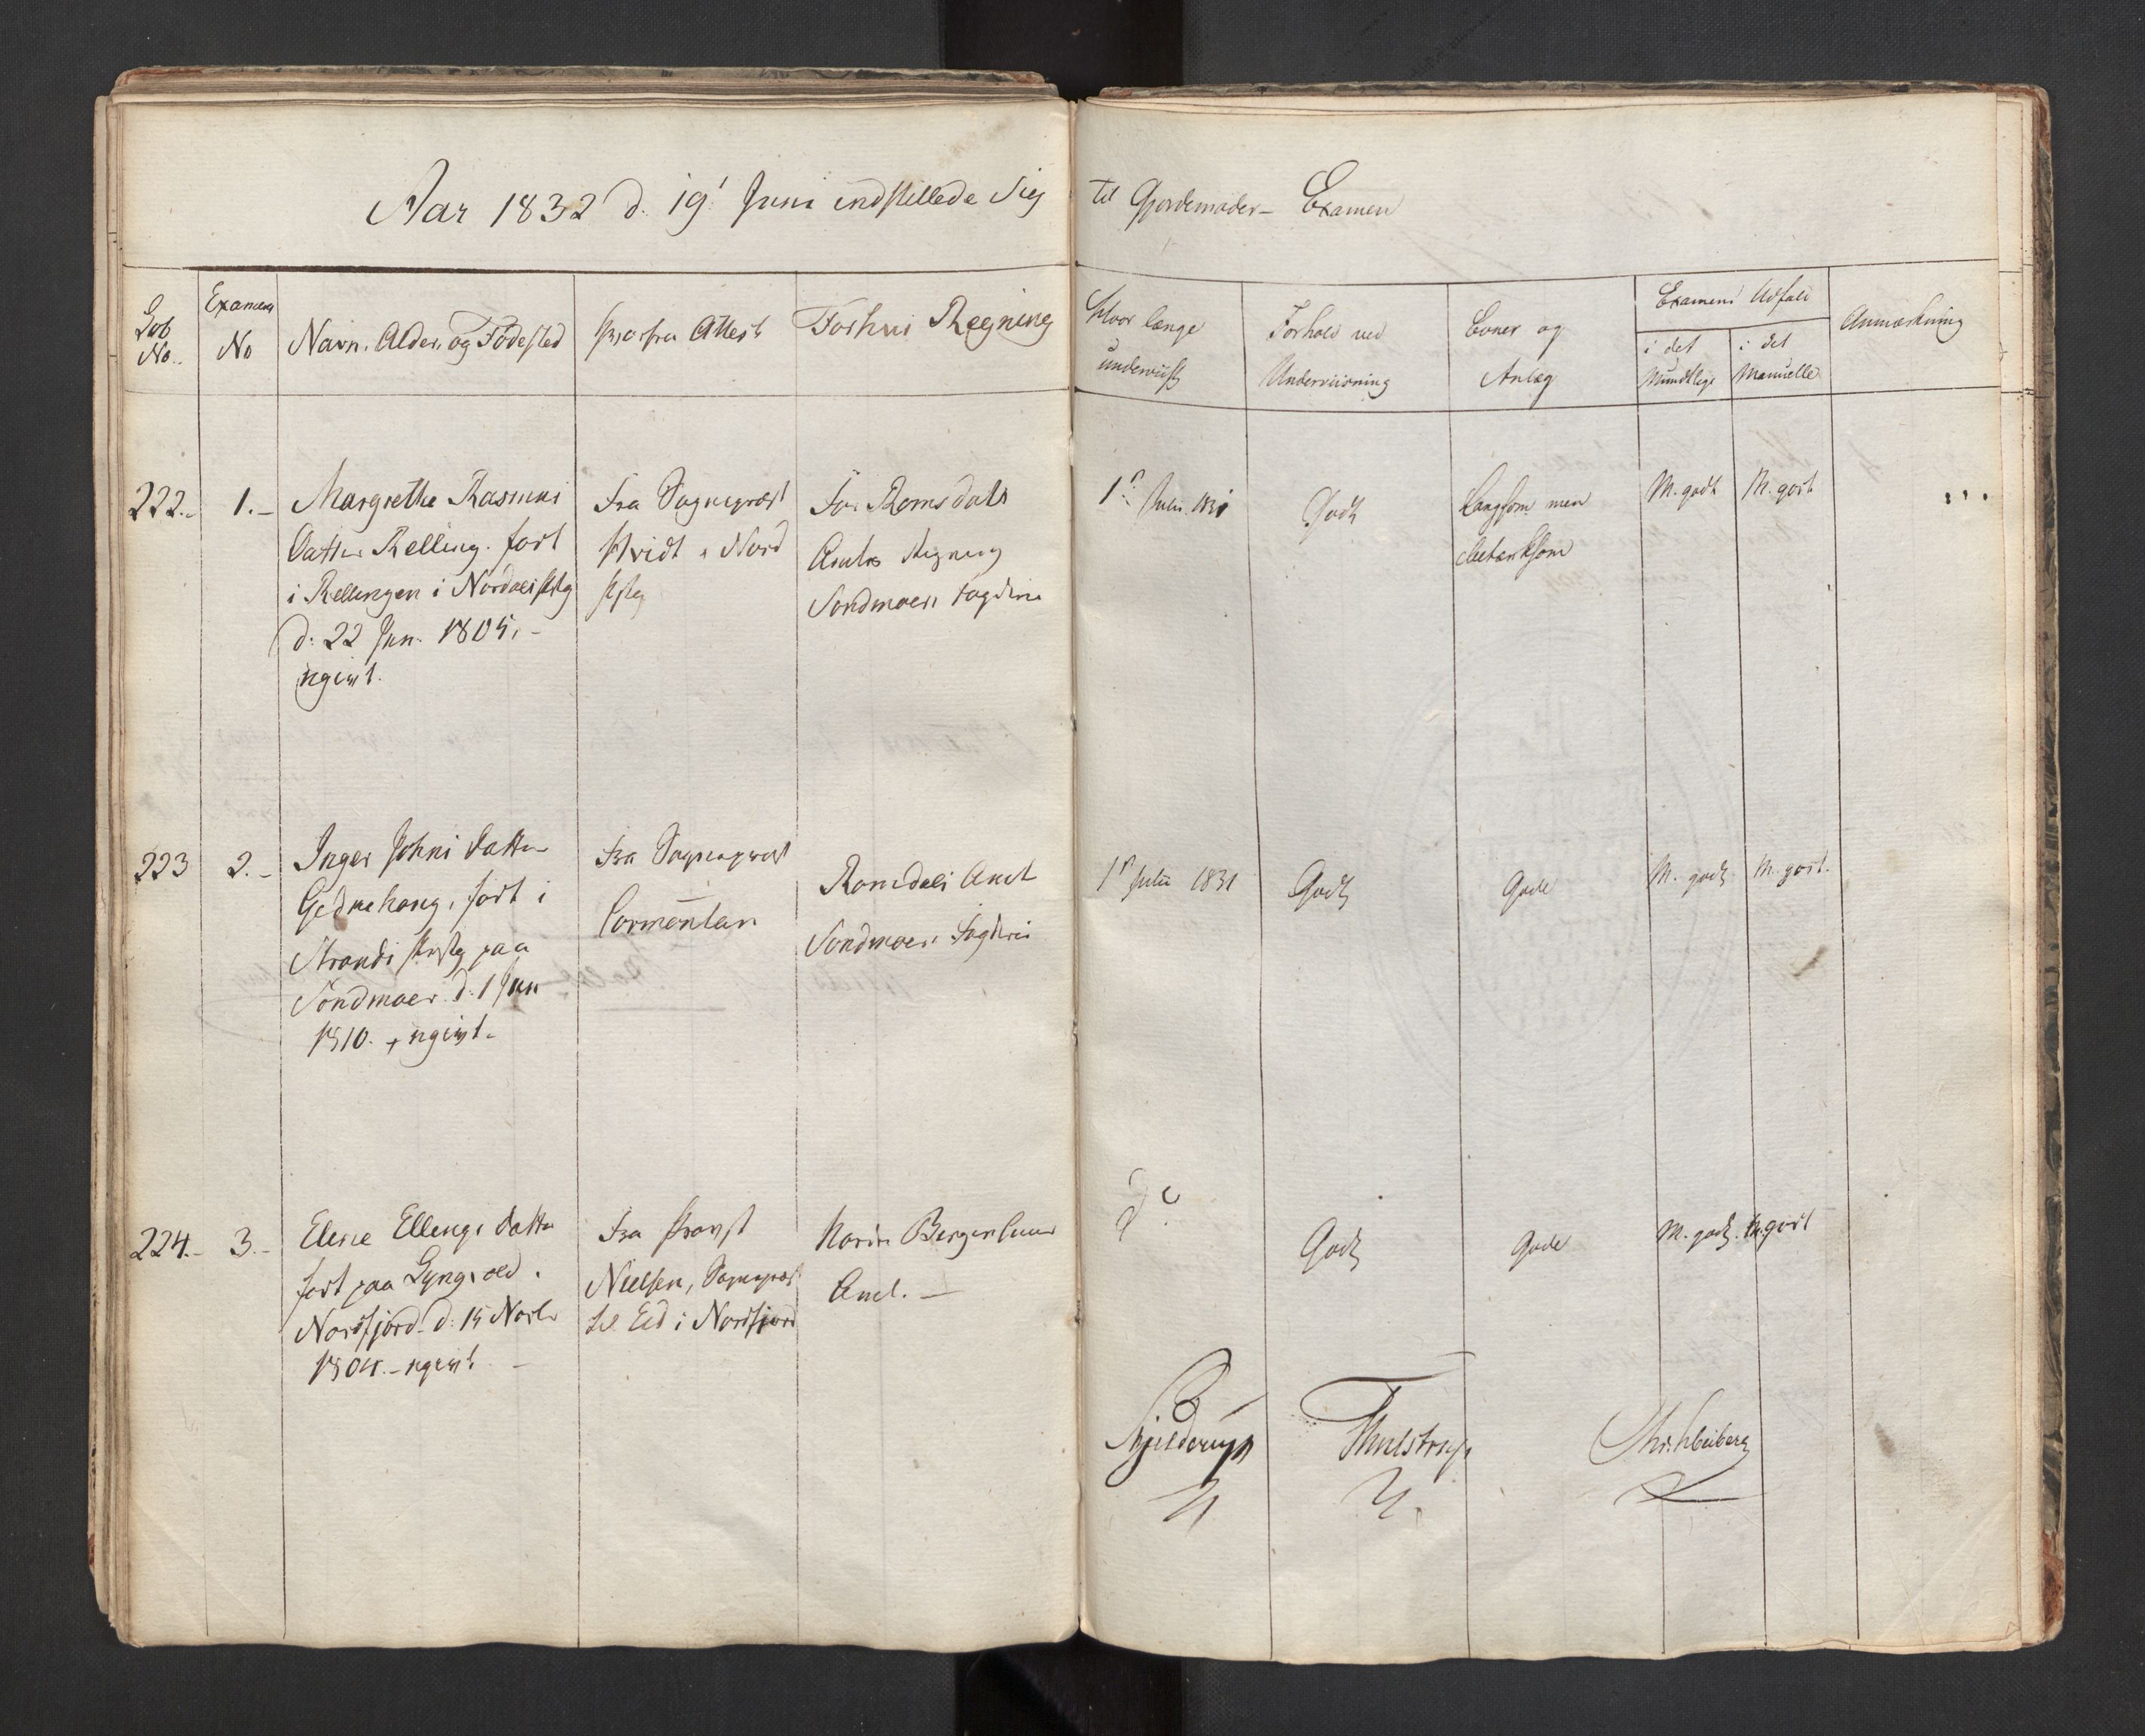 Aar 1832 d. 19' Juni indstillede Sig til Gjordemoder-Examen
Lob No.
Examens No
Navn, Alder, og Fødested
Hvorfra Attest
For hvis Regning
Hvor længe underviist
Forhold ved Underviisning
Evner og Anlæg
Examens Udfald
i det Mundtlige
i det Manuelle
Anmærkning
222.
1.-
Margrethe Rasmus
Datter Relling. født
i Rellingen i Nordals
d: 22 Jun. 1805.-
ugivt.
Fra Sognepræst
i Nord
For Romsdals
Amts Regning
Søndmoers Fogderie
1. Juli 1831
Godt
langsom men
betænksom
M. godt
M. godt
223
2.-
Inger Johns Datter
født i
Strands paa
Søndmoer d. 1 Jun
1810. ugivt.
Fra Sognepræst
Romsdals Amt
Søndmoers Fogderie
1. Julii 1831
Godt
Gode
M. godt
M. godt.
224.-
3.-
Elene Ellengs Datter
født paa
Nordfjord. d: 15
1804.- ugivt -
Fra Provst
Nielsen, Sognepræst
til Eid i Nordfjord
Nordre Bergenhuus
Amt. -
do
Godt
Gode
M. godt.
M. godt
Skjelderup
Thulstrup
Chr. Heiberg